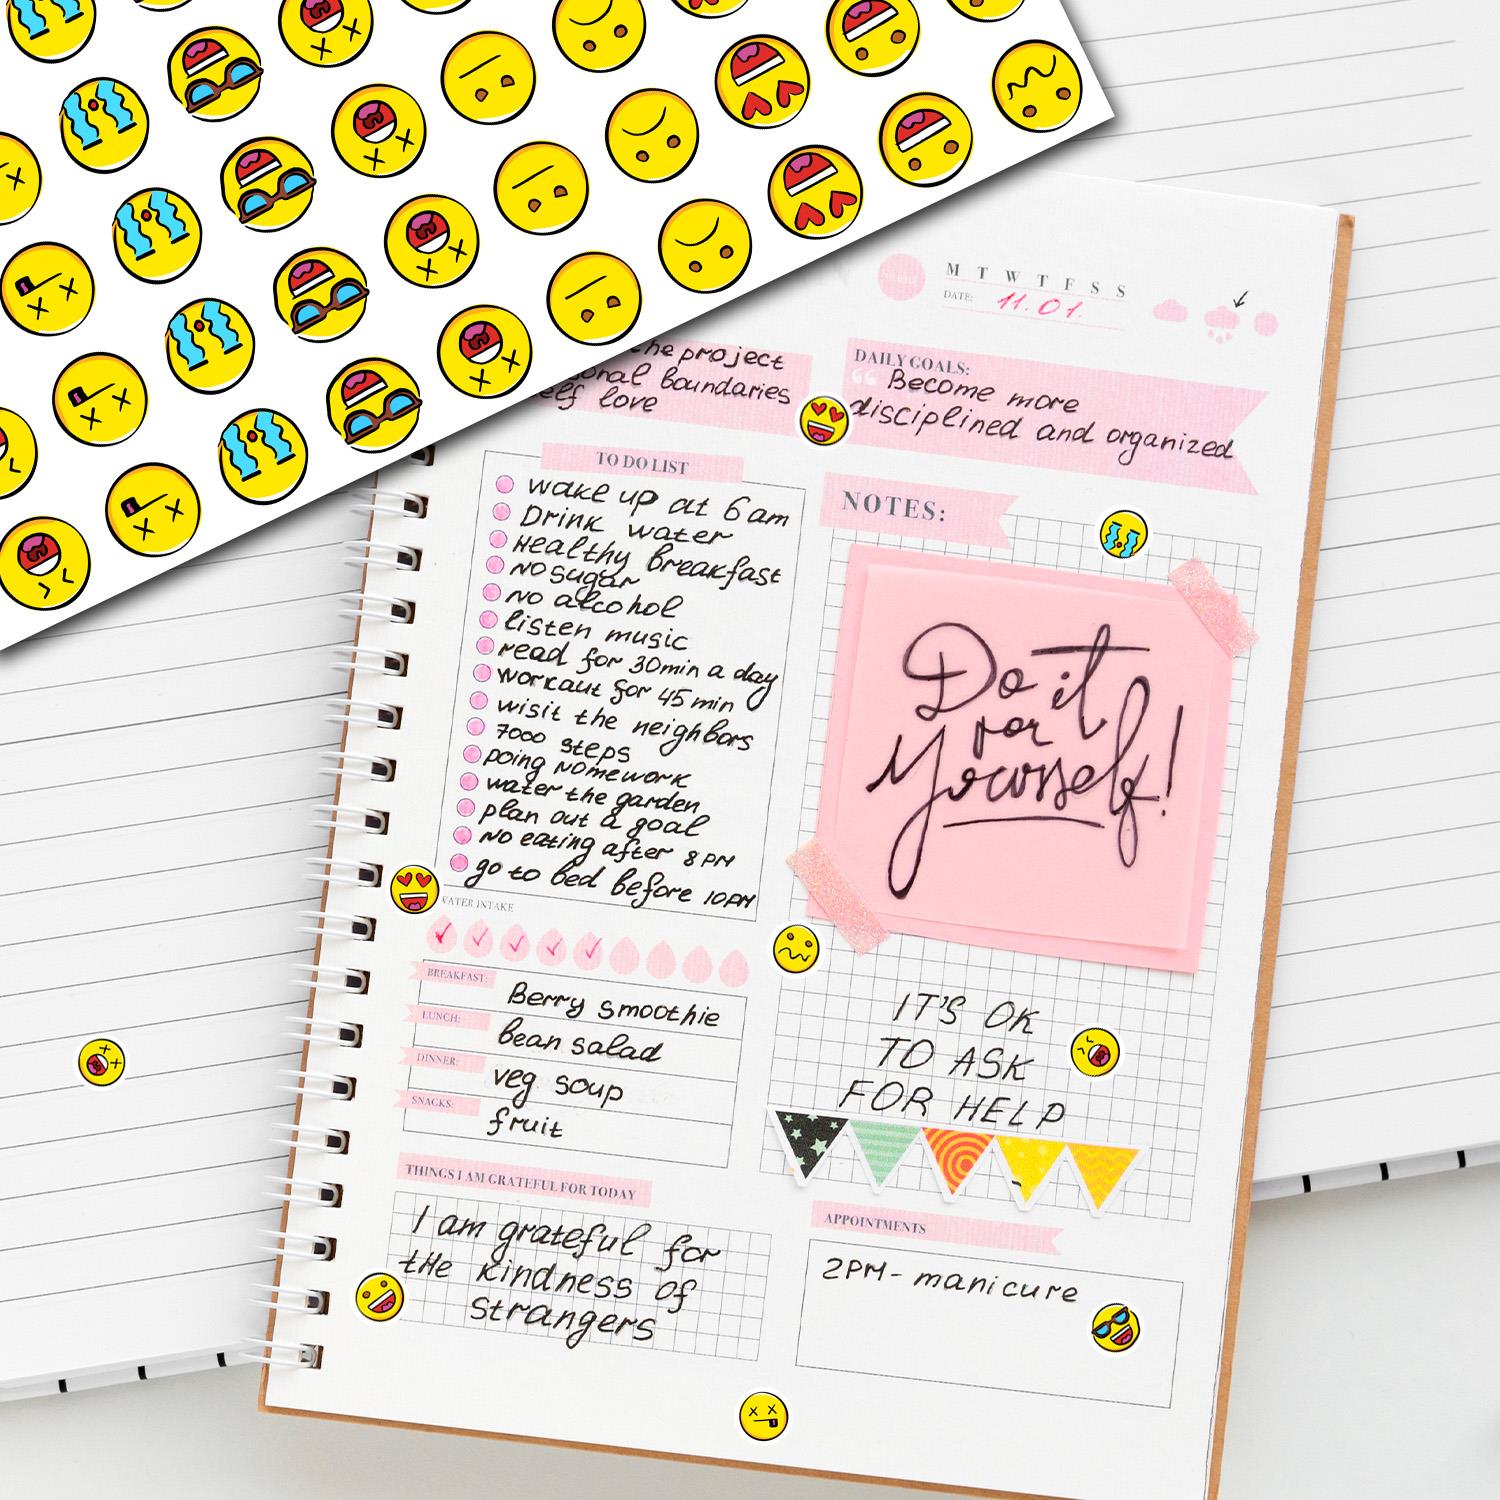 M T W T F S S
DATE: 11.01.
the project
boundaries
love
DAILY GOALS:
Become more
disciplined and organized
TO DO LIST
wake up at 6am
Drink water
Healthy breakfast
No sugar
No alcohol
listen music
read for 30min a day
workaut for 45 min
wisit the neighbors
7000 steps
poing Nomework
water the garden
plan out a goal
No eating after 8PM
go to bed before 10PM
WATER INTAKE
BREAKFAST: Berry smoothie
LUNCH: bean salad
DINNER: veg soup
SNACKS: fruit
THINGS I AM GRATEFUL FOR TODAY
I am grateful for
the kindness of
strangers
NOTES:
Do it
for
Yourself!
IT'S OK
TO ASK
FOR HELP
APPOINTMENTS
2PM- manicure